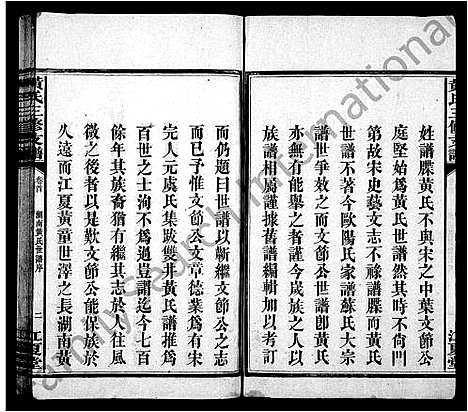 黃氏三修支譜
姓譜牒黃氏不與宋之中葉文節公
庭堅始爲黃氏世譜然其時不尚門
第故宋史藝文志不祿譜牒而黃氏
世譜不著今歐陽氏家譜蘇氏大宗
譜世爭效之而文節公世譜卽黃氏
亦無有能舉之者謹今成族之人以
次相屬謹據舊譜編輯加以考訂
江夏堂
而仍題曰世譜以斬繼文節公之志
乎已予惟文節公文章德業爲有宋
完人元虞氏集跋雙井黃氏譜推爲
百世之士洵不爲過豈謂迄今七百
餘年其族裔猶有繼其志於人往風
微之後者是以歎文節公能保族於
久遠而江夏黃童世澤之長湖南黃
黃氏三修支譜
卷首
湖南黃氏世譜序
二
江夏堂
FamilySearch International